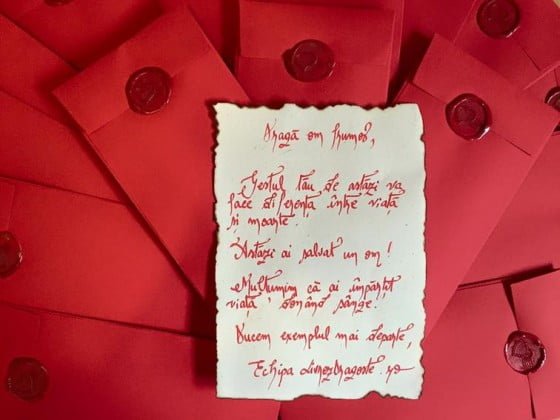 Dragă om frumos,
Gestul tău de astăzi va
face diferența între viață
și moarte.
Astăzi ai salvat un om!
Mulțumim că ai împărțit
viață, donând sânge!
Ducem exemplul mai departe,
Echipa LivrezDragoste.ro